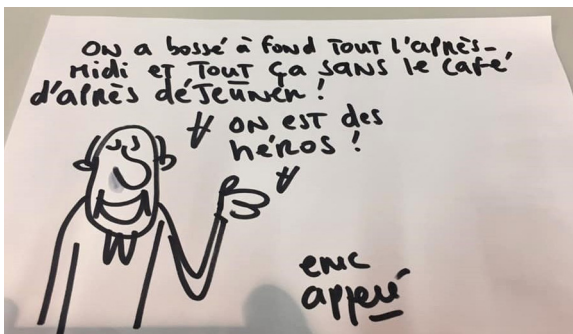 ON a bossé à fond TOUT l'APRÈS-
Midi et TOUT ça SANS le café
d'APRÈS déJeûneR !
ON est des
héROS !
eRic
appeRé